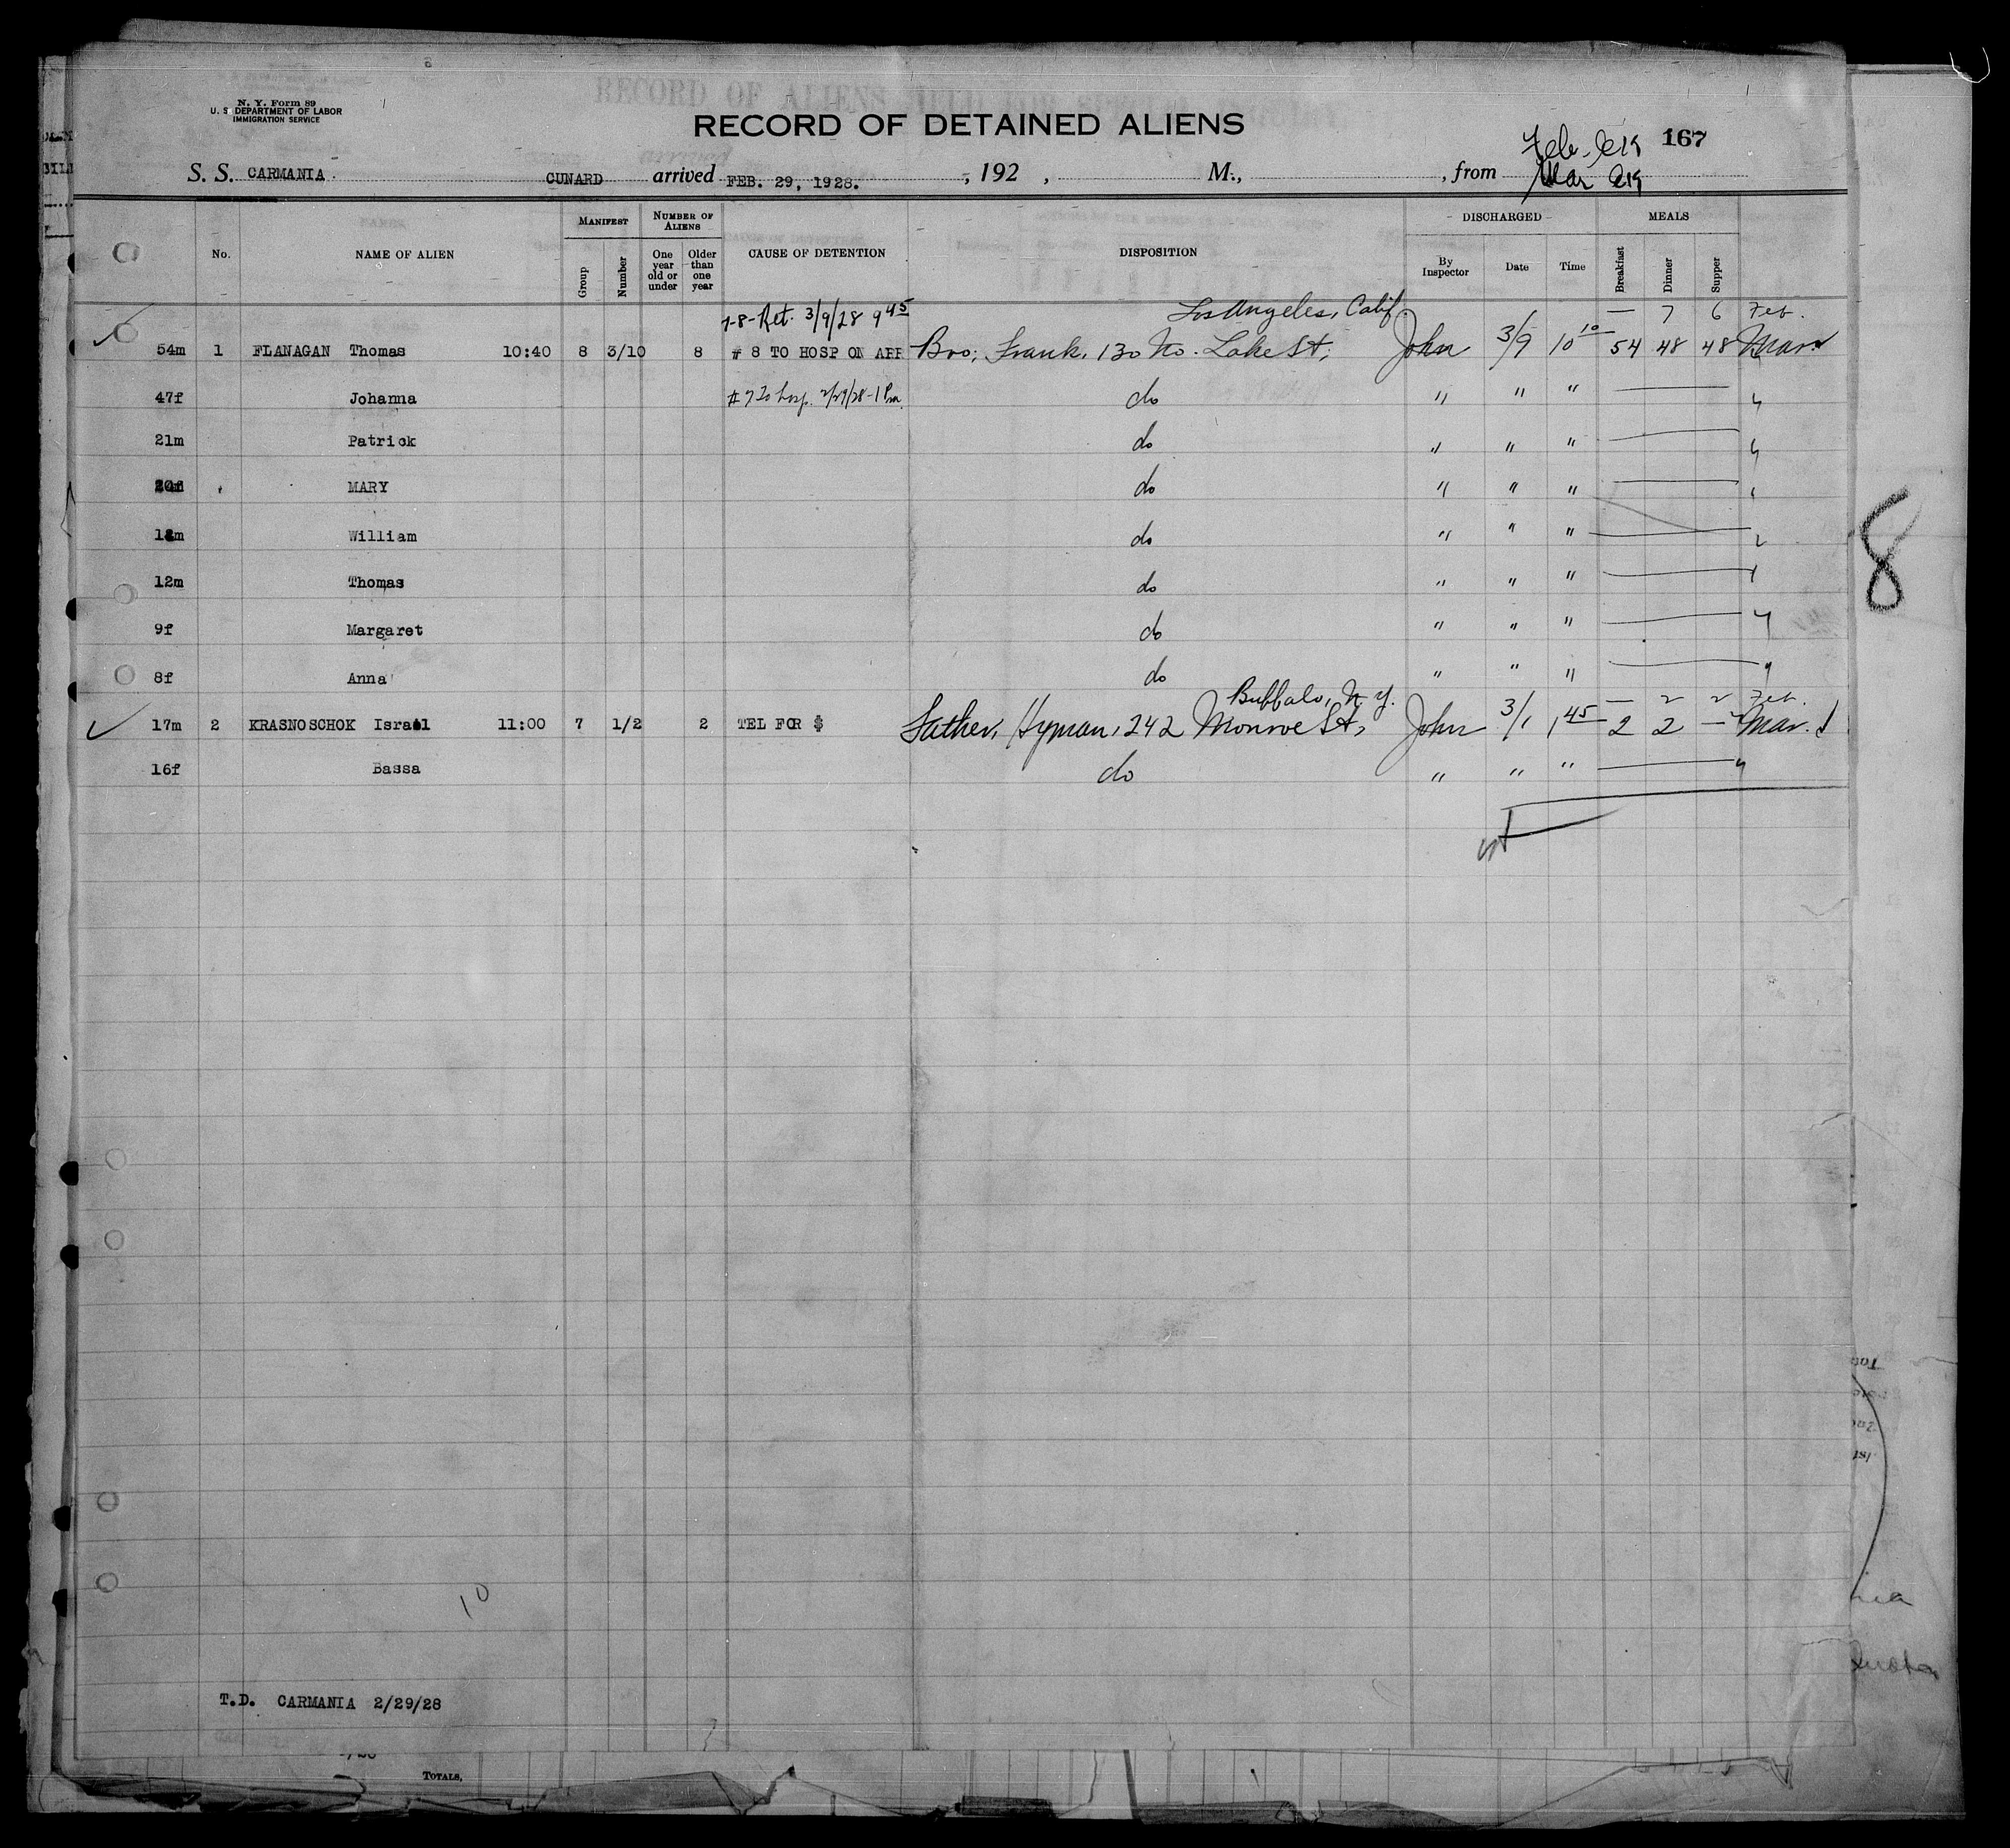 N. Y. Form 89
U. S. DEPARTMENT OF LABOR
IMMIGRATION SERVICE
RECORD OF ALIENS
RECORD OF DETAINED ALIENS
Feb. 167
Mar
S. S. CARMANIA. CUNARD arrived FEB. 29, 1928. , 192 , M., , from
No. NAME OF ALIEN MANIFEST Group Number NUMBER OF ALIENS One year old or under Older than one year CAUSE OF DETENTION DISPOSITION DISCHARGED By Inspector Date Time MEALS Breakfast Dinner Supper
7-8-Ret. 3/9/28 9 45 Los Angeles, Calif. — 7 6 Feb.
54m 1 FLANAGAN Thomas 10:40 8 3/10 8 # 8 TO HOSP ON ARR Bro; Frank, 130 No. Lake St, John 3/9 10 10 54 48 48 Mar.
47f Johanna #7 To hosp. 2/29/28-1 Pm. do " " "
21m Patrick do " " "
20f MARY do " " "
William do " " "
12m Thomas do " " "
9f Margaret do " " "
8f Anna do " " "
Buffalo, N. Y. — 2 2 Feb.
17m 2 KRASNOSCHOK Israel 11:00 7 1/2 2 TEL FOR $ Father, Hyman, 242 Monroe St, John 3/1 1 45 2 2 — Mar.
16f Bassa do " " "
8
10
T.D. CARMANIA 2/29/28
TOTALS,